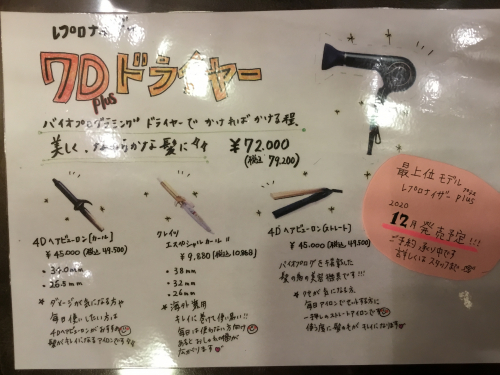 レプロナイザー
7D plus ドライヤー
バイオプログラミング ドライヤーで かければかける程
美しく、なめらかな髪に
¥72.000
(税込 79,200)
最上位モデル
レプロナイザー 7D plus
2020
12月 発売予定!!!
ご予約 承り中です
詳しくはスタッフまで
4Dヘアビューロン[カール]
¥45000 (税込 49,500)
・34.0mm
・26.5mm
* ダメージが気になる方や
毎日使いしたい方は
4Dヘアビューロンがおすすめ
髪がキレイになるアイロンです
クレイツ
エスペシャルカール
¥9,880 (税込10,868)
・38mm
・32mm
・26mm
* 海外兼用
キレイに巻けて優しい!!
毎日は使わない方向け
あると おしゃれの幅が
広がります
4Dヘアビューロン[ストレート]
¥45000 (税込 49,500)
バイオプログラミングを搭載した
髪の為の美容機器です!!!
* クセが気になる方、
毎日アイロンとセットする方に
一押しのストレートアイロンで
使う度に髪のもちがキレイになります